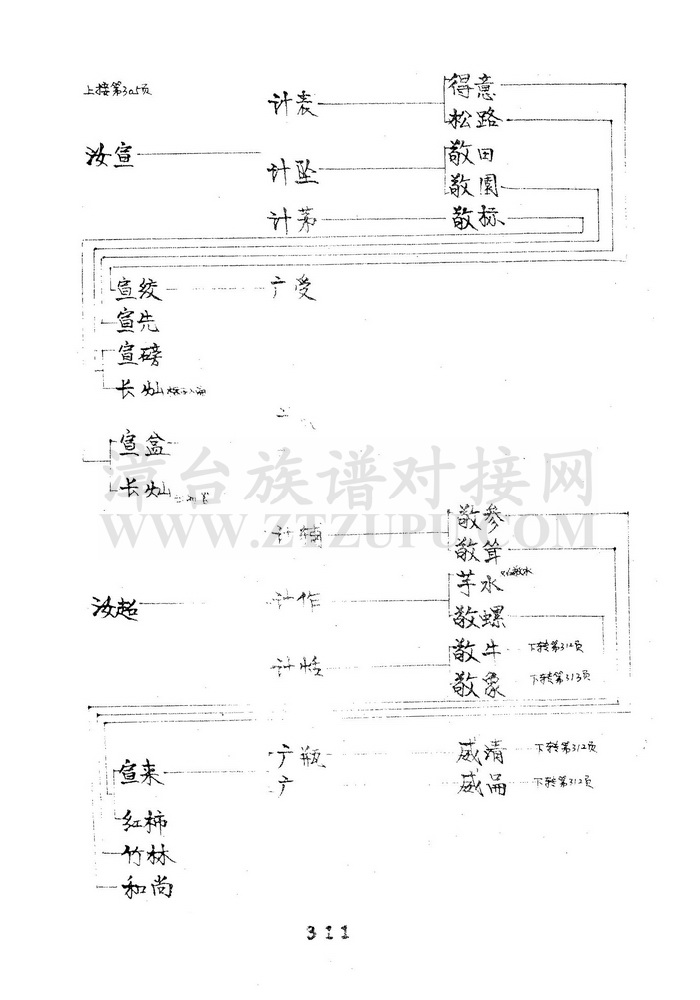 上接第305页
计袁
得意
松路
汝宣
计坠
敬田
敬園
计茅
敬标
宣绞
广受
宣先
宣磅
长灿
宣盆
长灿
漳台族谱对接网
WWW.ZTZUPU.COM
计楠
敬参
敬茸
汝超
计作
芋水
敬螺
计恬
敬牛 下转第312页
敬象 下转第313页
宣来
广瓶
威清 下转第312页
广
威 下转第312页
红柿
竹林
和尚
311